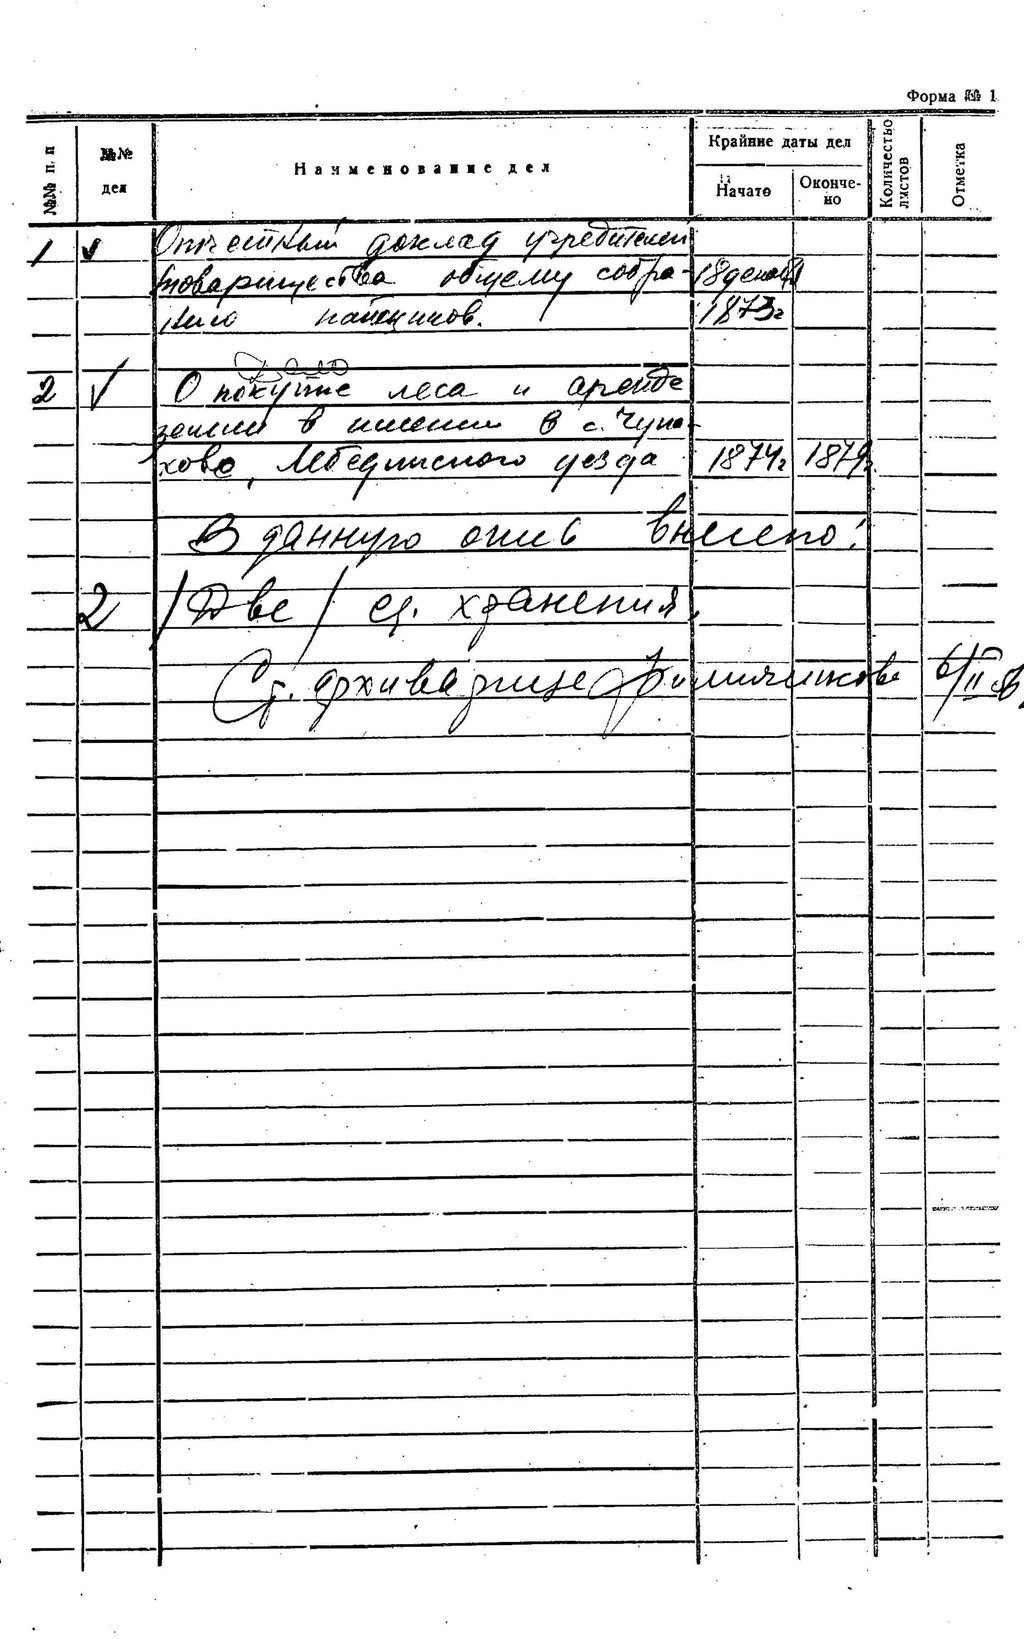 Форма № 1
№№ п. п
№№ дел
Наименование дел
Крайние даты дел
Начато
Окончено
Количество листов
Отметка
1 Отчетный доклад учредителей
товарищества общему собра- 18 декабря
нию пайщиков. 1873г
Дело
2 О покупке леса и аренде
земли в имении в с. Чупа-
хово, Лебединского уезда 1874г 1879г
В данную опись внесено:
2 /Две/ ед. хранения.
Ст. архивариус